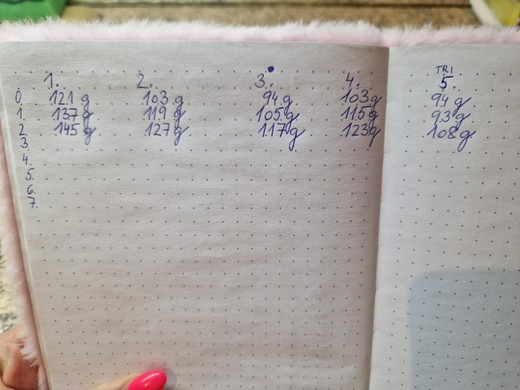 TRI
1. 2. 3. 4. 5.
0. 121 g 103 g 94 g 103 g 94 g
1. 137 g 119 g 105 g 115 g 93 g
2. 145 g 127 g 117 g 123 g 108 g
3.
4.
5.
6.
7.